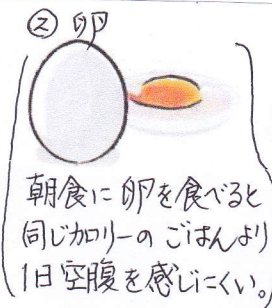 ② 卵
朝食に卵を食べると
同じカロリーのごはんより
1日空腹を感じにくい。